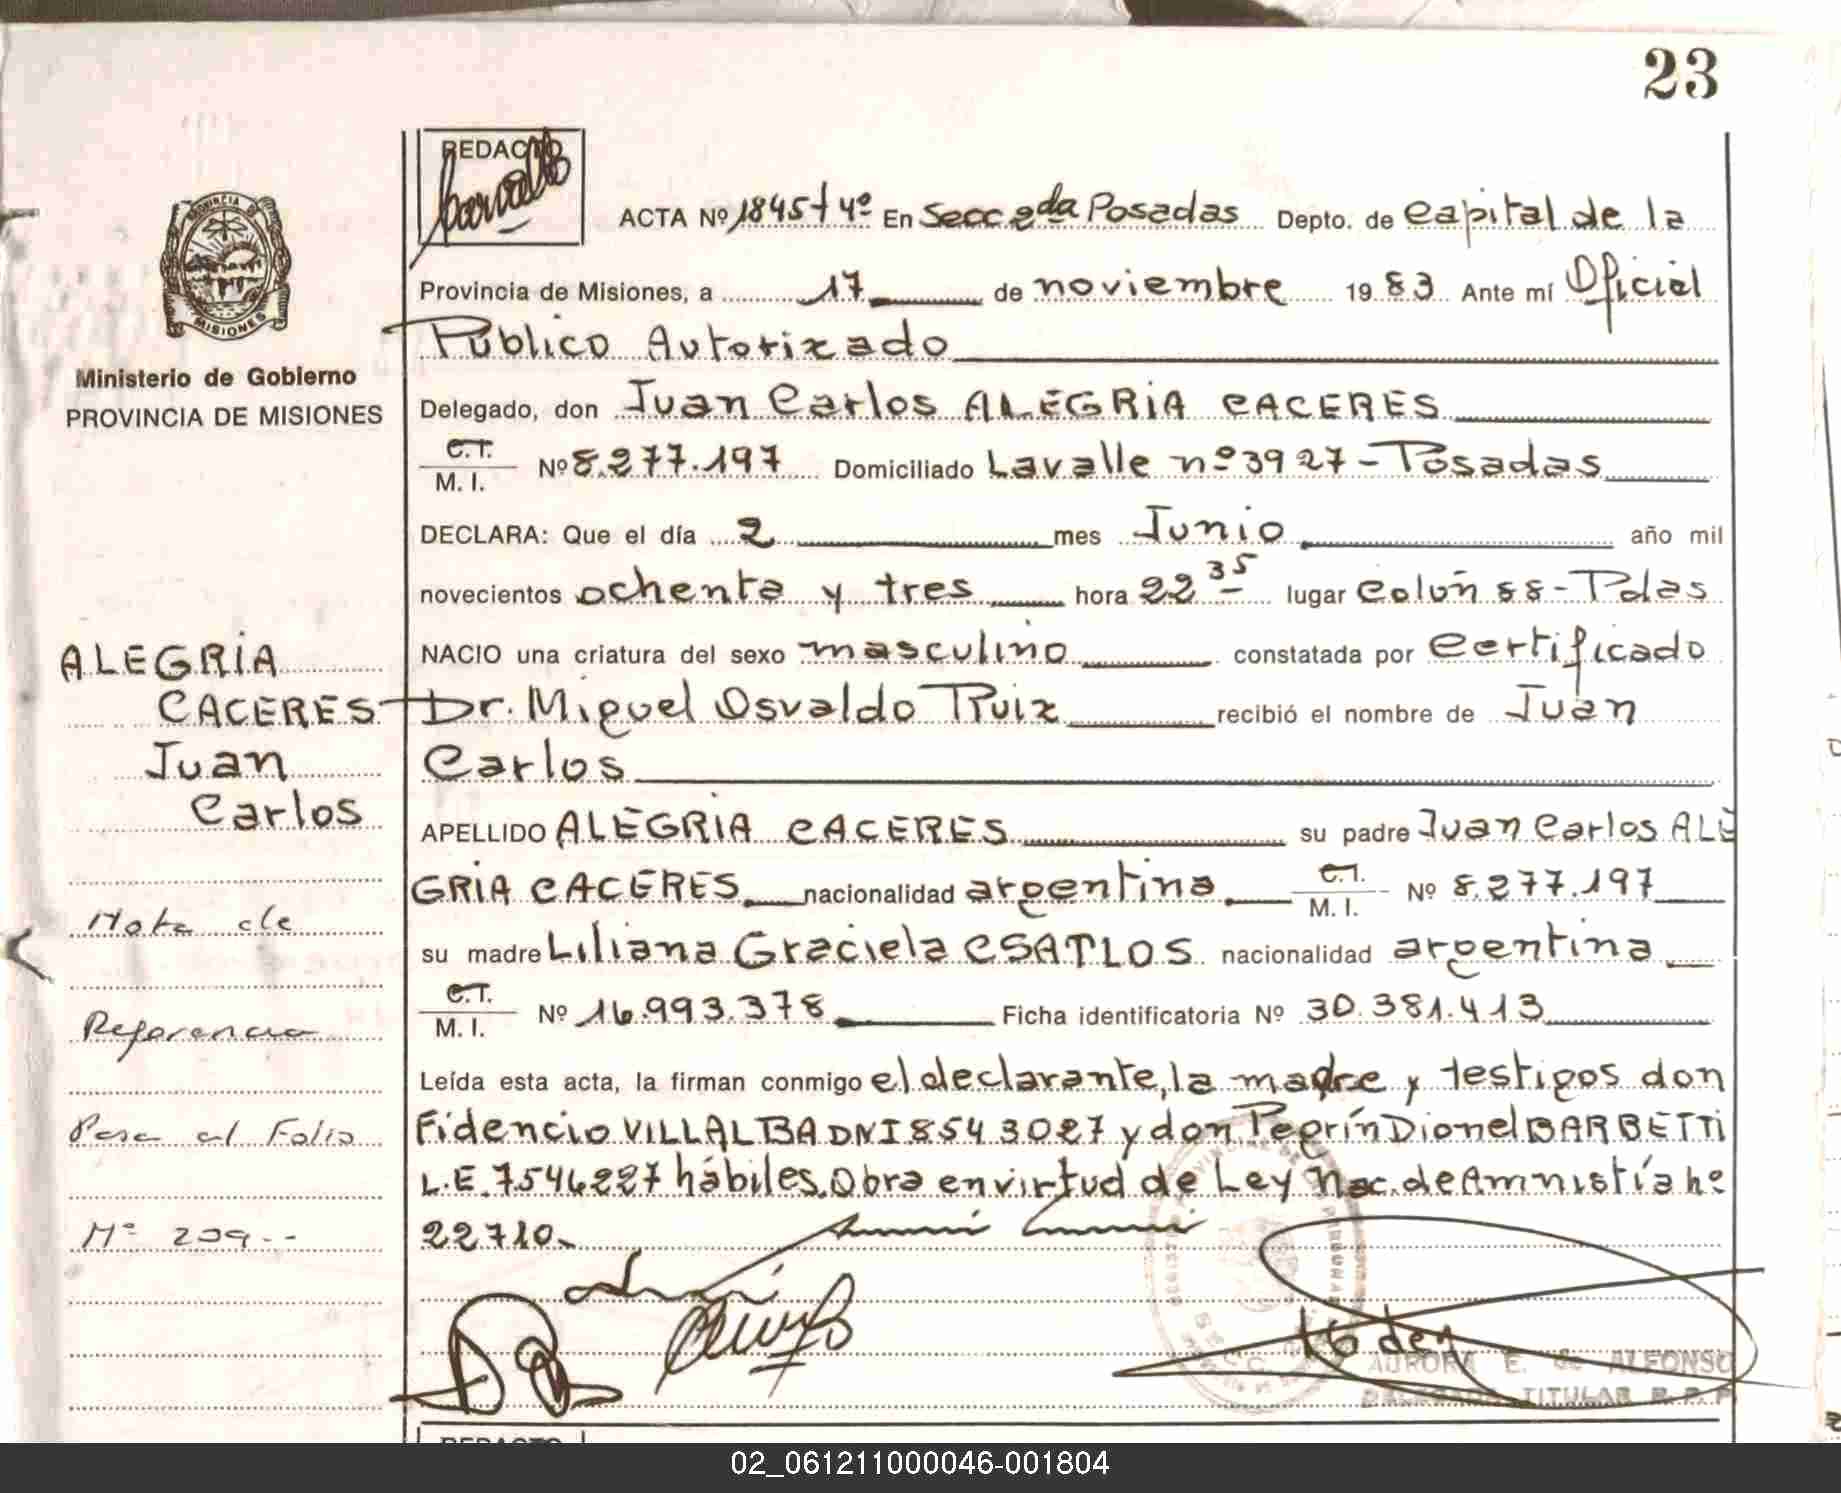 23
REDACTO
ACTA Nº 1845 t 4º En Secc 2da Posadas Depto. de Capital de la
Provincia de Misiones, a 17 de noviembre 1983 Ante mí Oficial
Público Autorizado
Ministerio de Gobierno
PROVINCIA DE MISIONES
PROVINCIA DE
MISIONES
Delegado, don Juan Carlos ALEGRIA CACERES
C.I.
M. I. Nº 8.277.197 Domiciliado Lavalle nº 3927 - Posadas
DECLARA: Que el día 2 mes Junio año mil
novecientos ochenta y tres hora 22 35 lugar Colón 88 - Pdas
NACIO una criatura del sexo masculino constatada por Certificado
Dr. Miguel Osvaldo Ruiz recibió el nombre de Juan
Carlos
APELLIDO ALEGRIA CACERES su padre Juan Carlos ALE
GRIA CACERES nacionalidad argentina C.I.
M. I. Nº 8.277.197
su madre Liliana Graciela CSATLOS nacionalidad argentina
C.I.
M. I. Nº 16.993.378 Ficha identificatoria Nº 30.381.413
Leída esta acta, la firman conmigo el declarante, la madre y testigos don
Fidencio VILLALBA DNI 8543027 y don Pegrín Dionel BARBETTI
L.E. 7546227 hábiles. Obra en virtud de Ley Nac. de Amnistía nº
22710.
ALEGRIA
CACERES
Juan
Carlos
Nota de
Referencia
Pasa al Folio
Nº 209--
AURORA E. de ALFONSO
DELEGADO TITULAR R.P.P
REDACTO
02_061211000046-001804